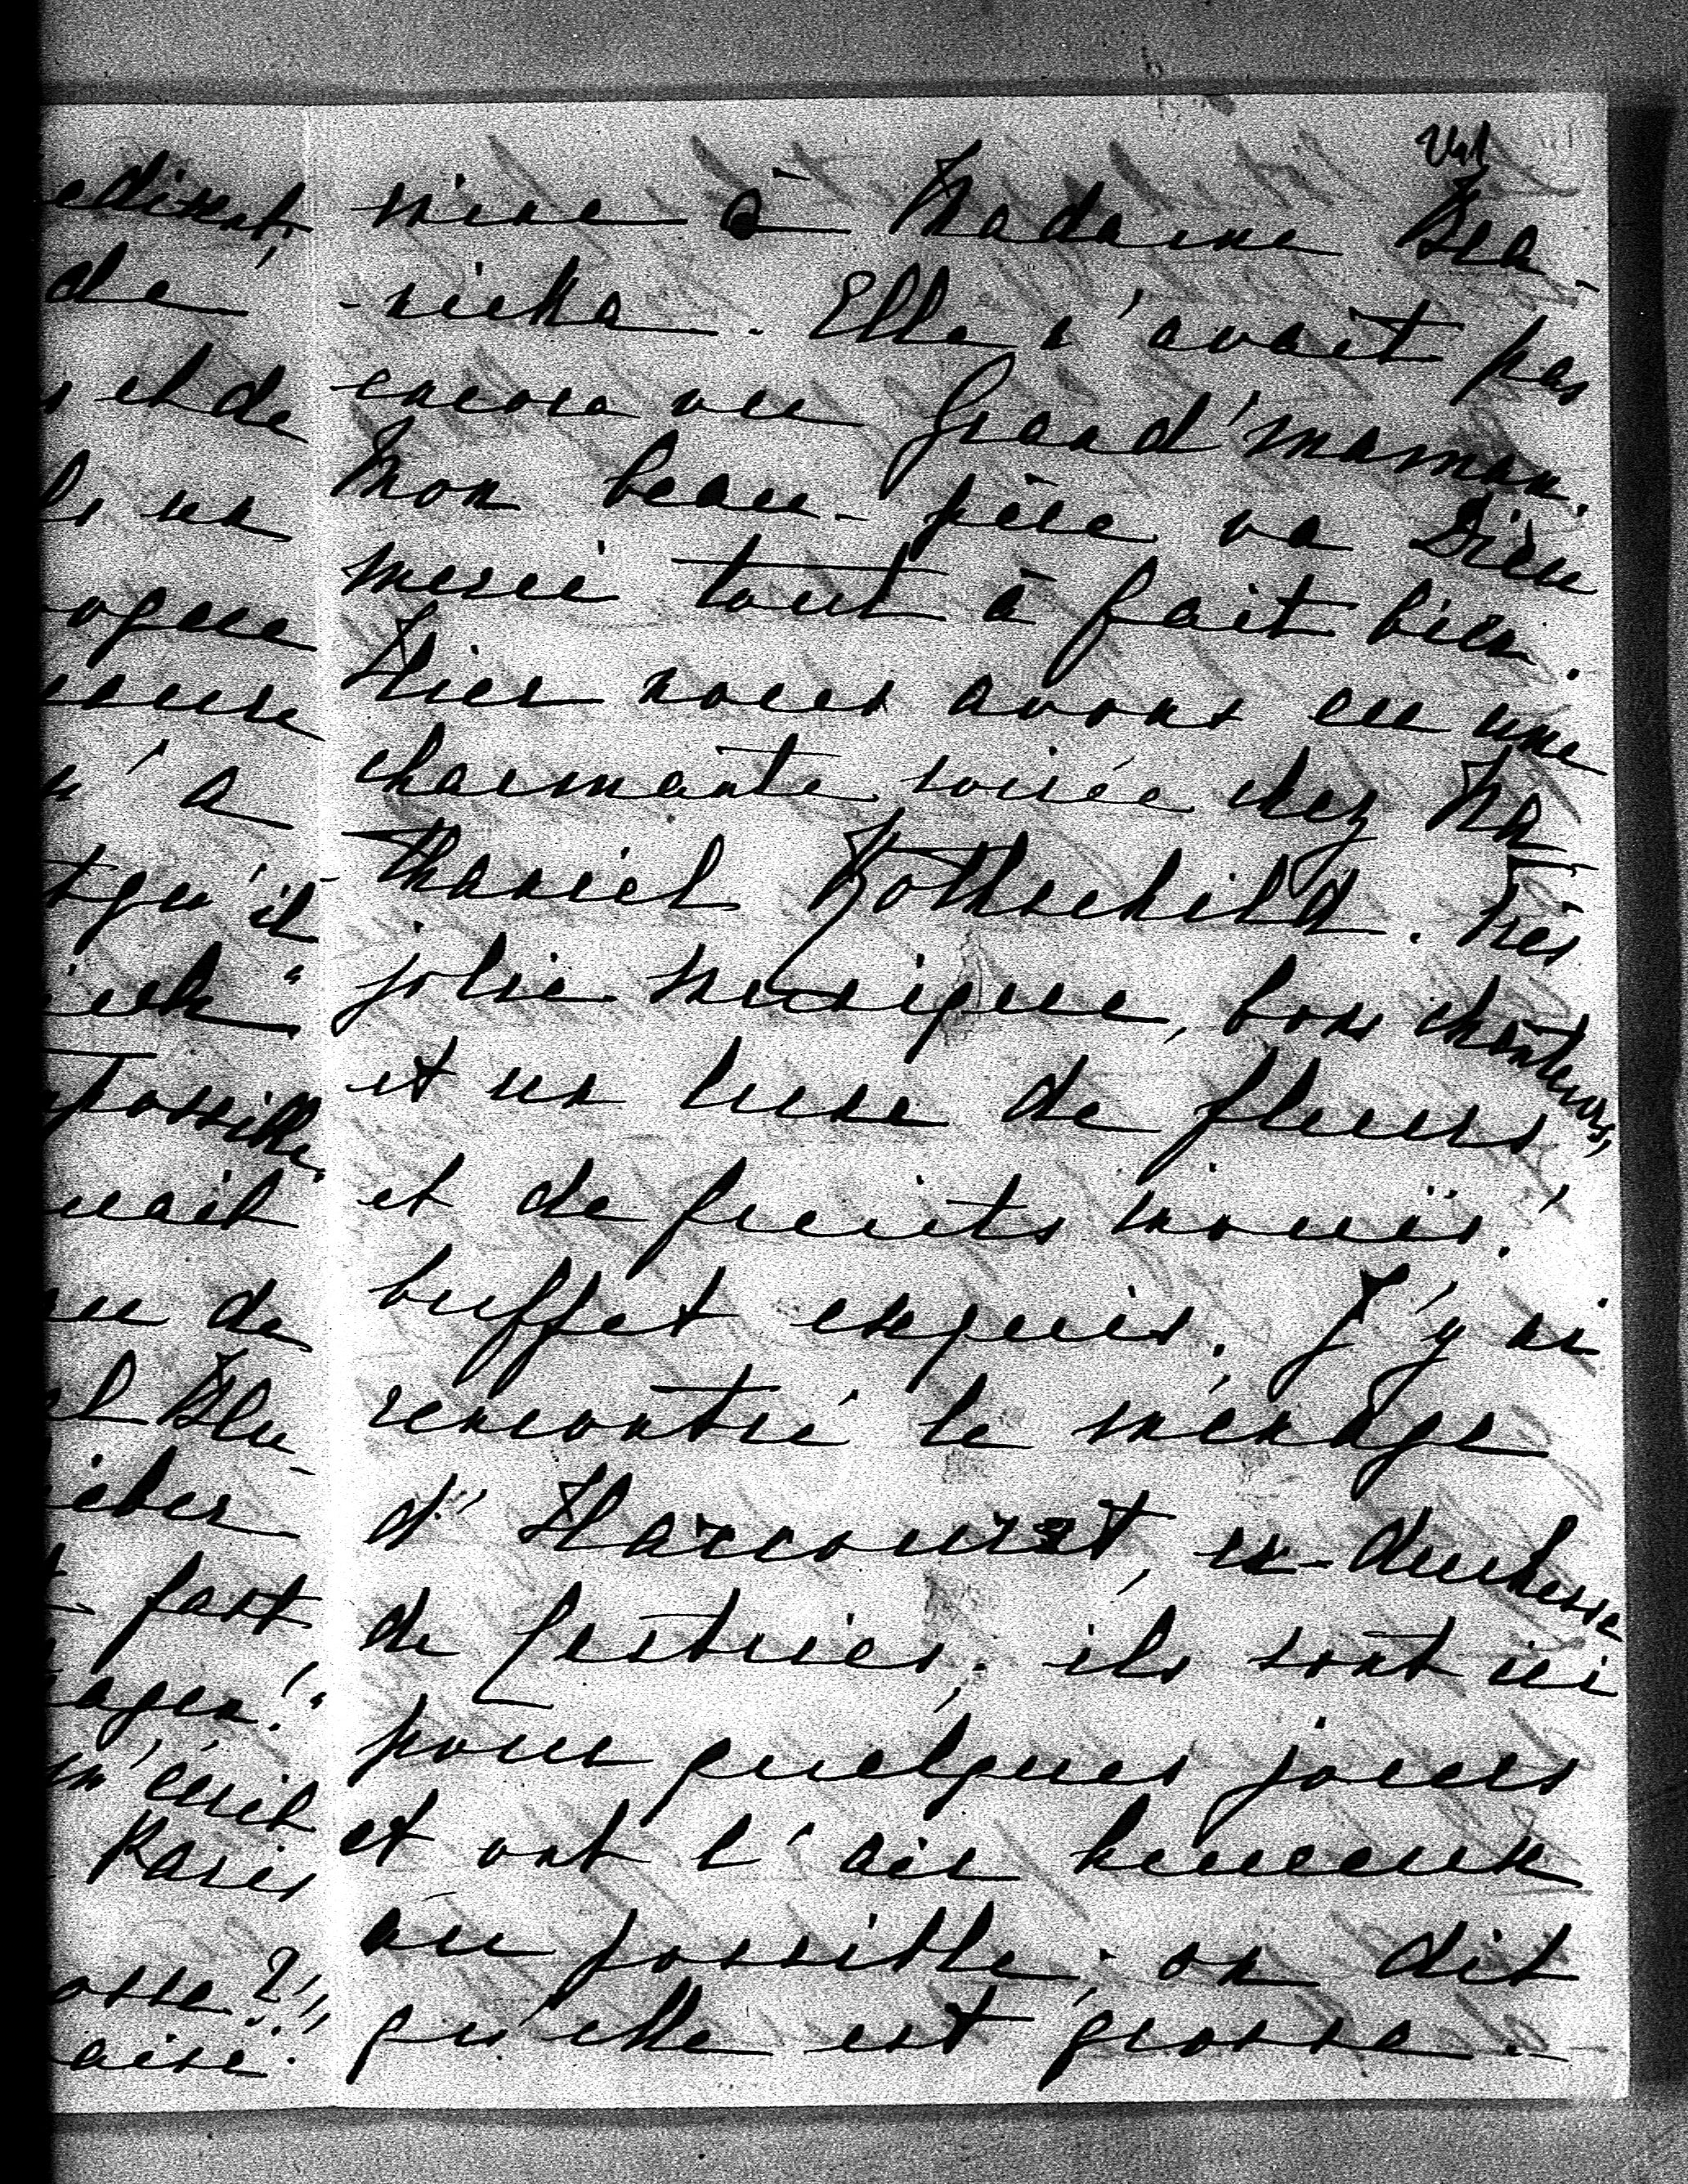 edisent,
de
s et de
ls un
ogue
n'a
tqu'il
possible.
uait
de
et Blu-
fort
m'écrit
Paris
osse?!"
aise.
mise à Madame Bra-
-nicka. Elle n'avait pas
encore vu Grand'maman.
Mon beau-père va Dieu
merci tout à fait bien.
Hier nous avons eu une
charmante soirée chez Na-
thaniel Rothschild. Très
jolie musique, bons chanteurs,
et un luxe de fleurs
et de fruits inouïs!
buffet exquis. J'y ai
rencontré le ménage
d'Harcourt, ex-duchesse
de Castries; ils sont ici
pour quelques jours
et ont l'air heureux
au possible; on dit
qu'elle est grosse.